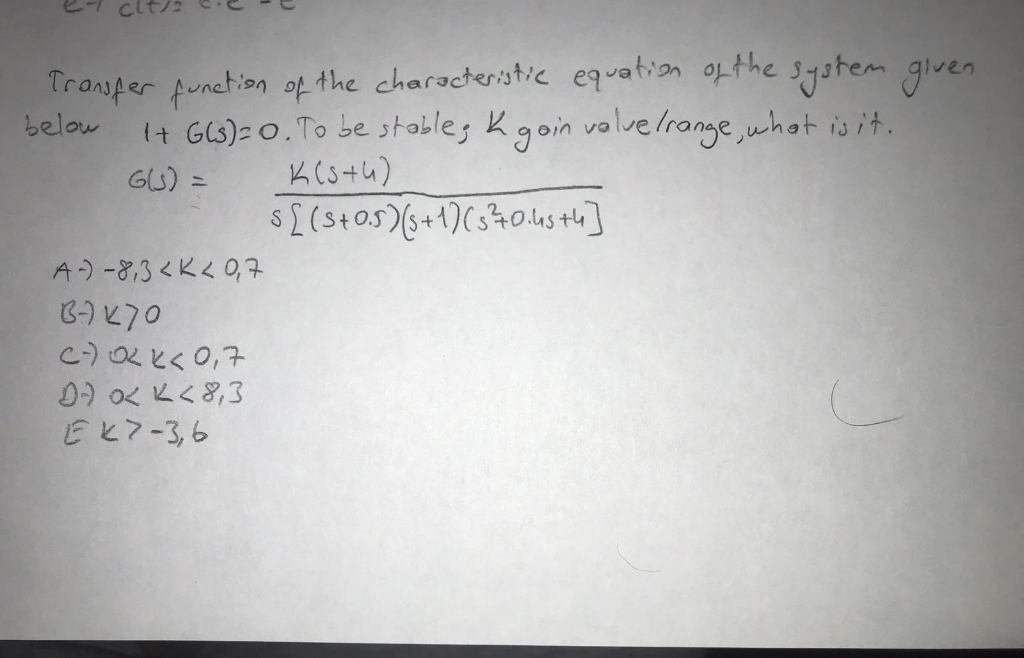 Transfer function of the characteristic equation of the system given
below 1+ G(s)=0. To be stable; K gain value/range, what is it.
G(s) = K(s+4)
s[(s+0.5)(s+1)(s²+0.4s+4]
A-) -8,3<K< 0,7
B-) K>0
C-) 0< K< 0,7
D-) 0< K<8,3
E K>-3,6